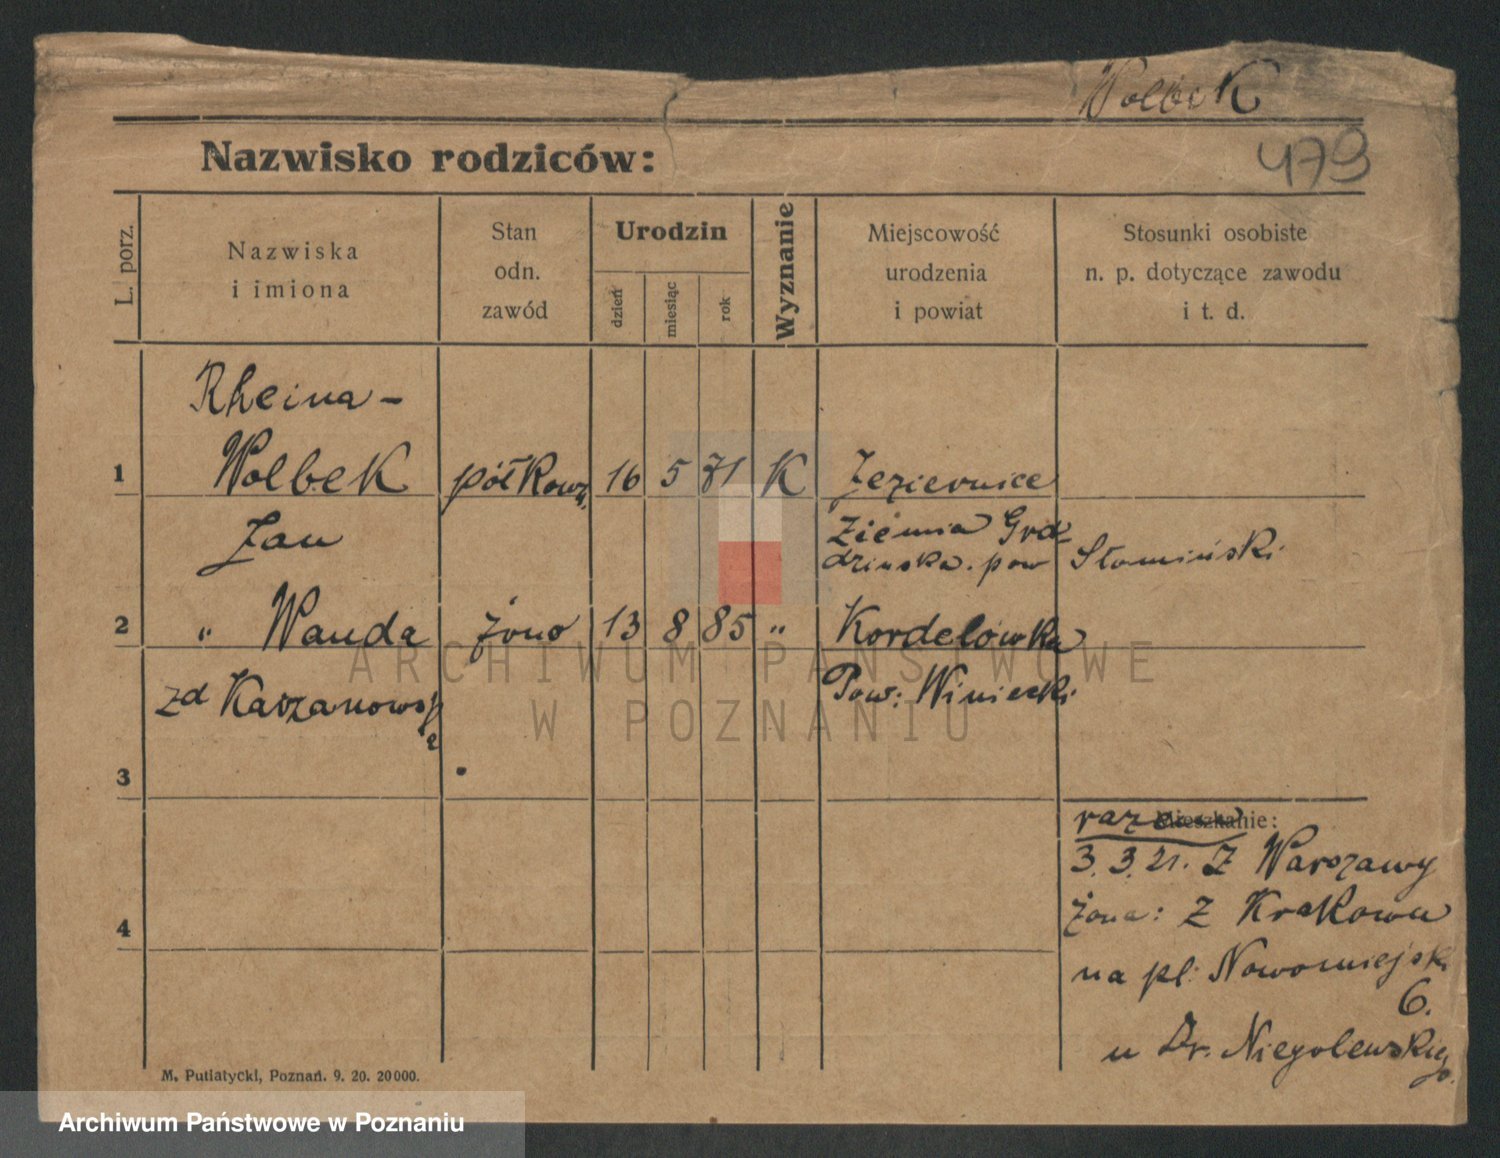 Wolbek
479
Nazwisko rodziców:
L. porz.
Nazwiska
i imiona
Stan
odn.
zawód
Urodzin
dzień
miesiąc
rok
Wyznanie
Miejscowość
urodzenia
i powiat
Stosunki osobiste
n. p. dotyczące zawodu
i t. d.
Rheina-
1 Wolbek półkown. 16 5 71 K Jeziernice
Jan Ziemia Grd-
dzinska. pow Słomiński
2 " Wanda żona 13 8 85 " Kordelówka
zd Karzanowska Pow. Winiecki
3
razem Mieszkanie:
3. 3. 21. Z Warszawy
4 żona: Z Krakowa
na pl. Nowomiejski
6.
u Dr. Niegolewskiego.
M. Putiatycki, Poznań. 9. 20. 20000.
ARCHIWUM PAŃSTWOWE
W POZNANIU
Archiwum Państwowe w Poznaniu